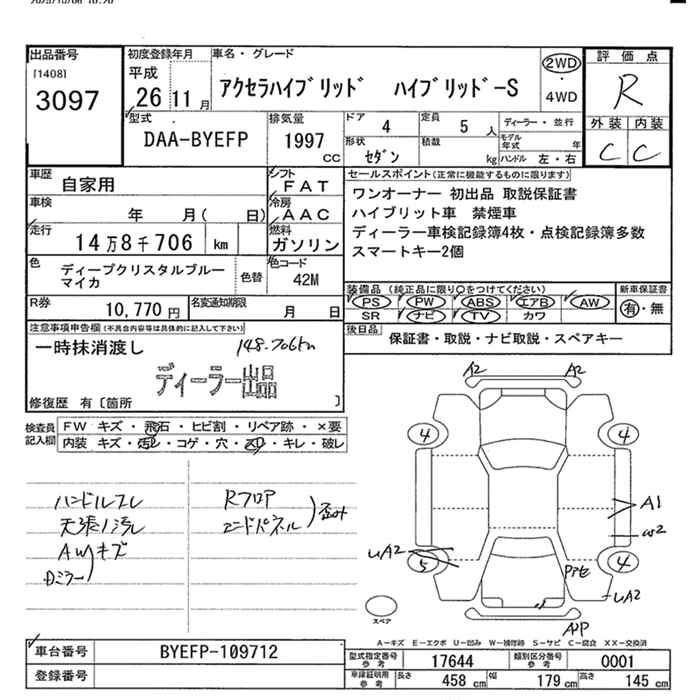 出品番号
[1408]
3097
初度登録年月
平成
26 11 月
車名・グレード
アクセラハイブリッド ハイブリッド-S
2WD
4WD
評価点
R
外装 内装
C C
型式
DAA-BYEFP
排気量
1997
CC
ドア 4
定員 5 人
形状 セダン
積載 kg
ディーラー・並行
モデル年式 年
ハンドル 左・右
車歴
自家用
シフト
FAT
車検
年 月( 日)
冷房
AAC
走行
14万8千706 km
燃料
ガソリン
色
ディープクリスタルブルー
マイカ
色替
色コード
42M
R券
10,770 円
名変通知期限
月 日
セールスポイント(正常に機能するものに限ります)
ワンオーナー 初出品 取説保証書
ハイブリット車 禁煙車
ディーラー車検記録簿4枚・点検記録簿多数
スマートキー2個
装備品(純正品に限り○をつけてください)
PS PW ABS エアB AW
SR ナビ TV カワ
新車保証書
有・無
後日品
保証書・取説・ナビ取説・スペアキー
注意事項申告欄(不具合内容等は具体的に記入して下さい)
一時抹消渡し
148.706km
ディーラー出品
修復歴 有〔箇所 〕
検査員
記入欄
FW キズ・飛石・ヒビ割・リペア跡・×要
内装 キズ・汚レ・コゲ・穴・スリ・キレ・破レ
ハンドルスレ
天張り汚レ
AWキズ
Dミラー
Rフロア
エンドパネル
歪み
A2 A2
4 4
A1
W2
UA2
5 4
UA2
スペア
A-キズ E-エクボ U-凹み W-補修跡 S-サビ C-腐食 XX-交換済
車台番号
BYEFP-109712
登録番号
型式指定番号
参考
17644
類別区分番号
参考
0001
車庫証明用
参考
長さ 458 cm 幅 179 cm 高さ 145 cm